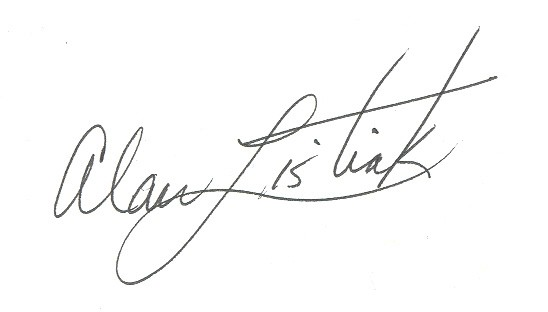 Alan Listiak